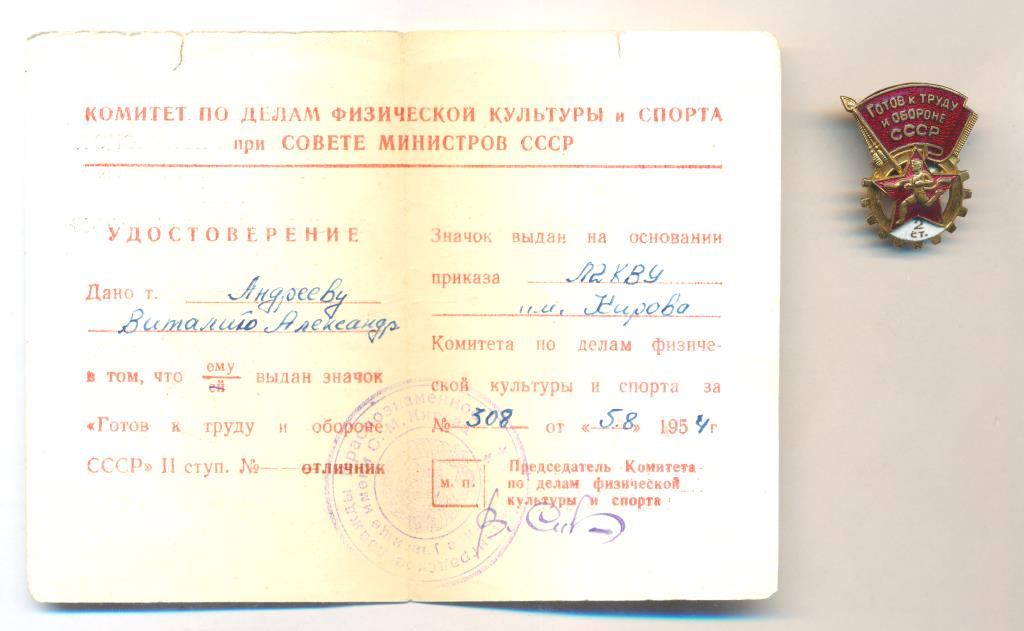 КОМИТЕТ ПО ДЕЛАМ ФИЗИЧЕСКОЙ КУЛЬТУРЫ и СПОРТА
при СОВЕТЕ МИНИСТРОВ СССР
УДОСТОВЕРЕНИЕ
Дано т. Андрееву
Виталию Александр
в том, что ему/ей выдан значок
«Готов к труду и обороне
СССР» II ступ. № отличник
Значок выдан на основании
приказа ЛДКВУ
им. Кирова
Комитета по делам физиче-
ской культуры и спорта за
№ 308 от «5.8» 1954г
м. п.
Председатель Комитета
по делам физической
культуры и спорта
Краснознаменное
имени С. М. Кирова
ГОТОВ К ТРУДУ
И ОБОРОНЕ
СССР
2
СТ.